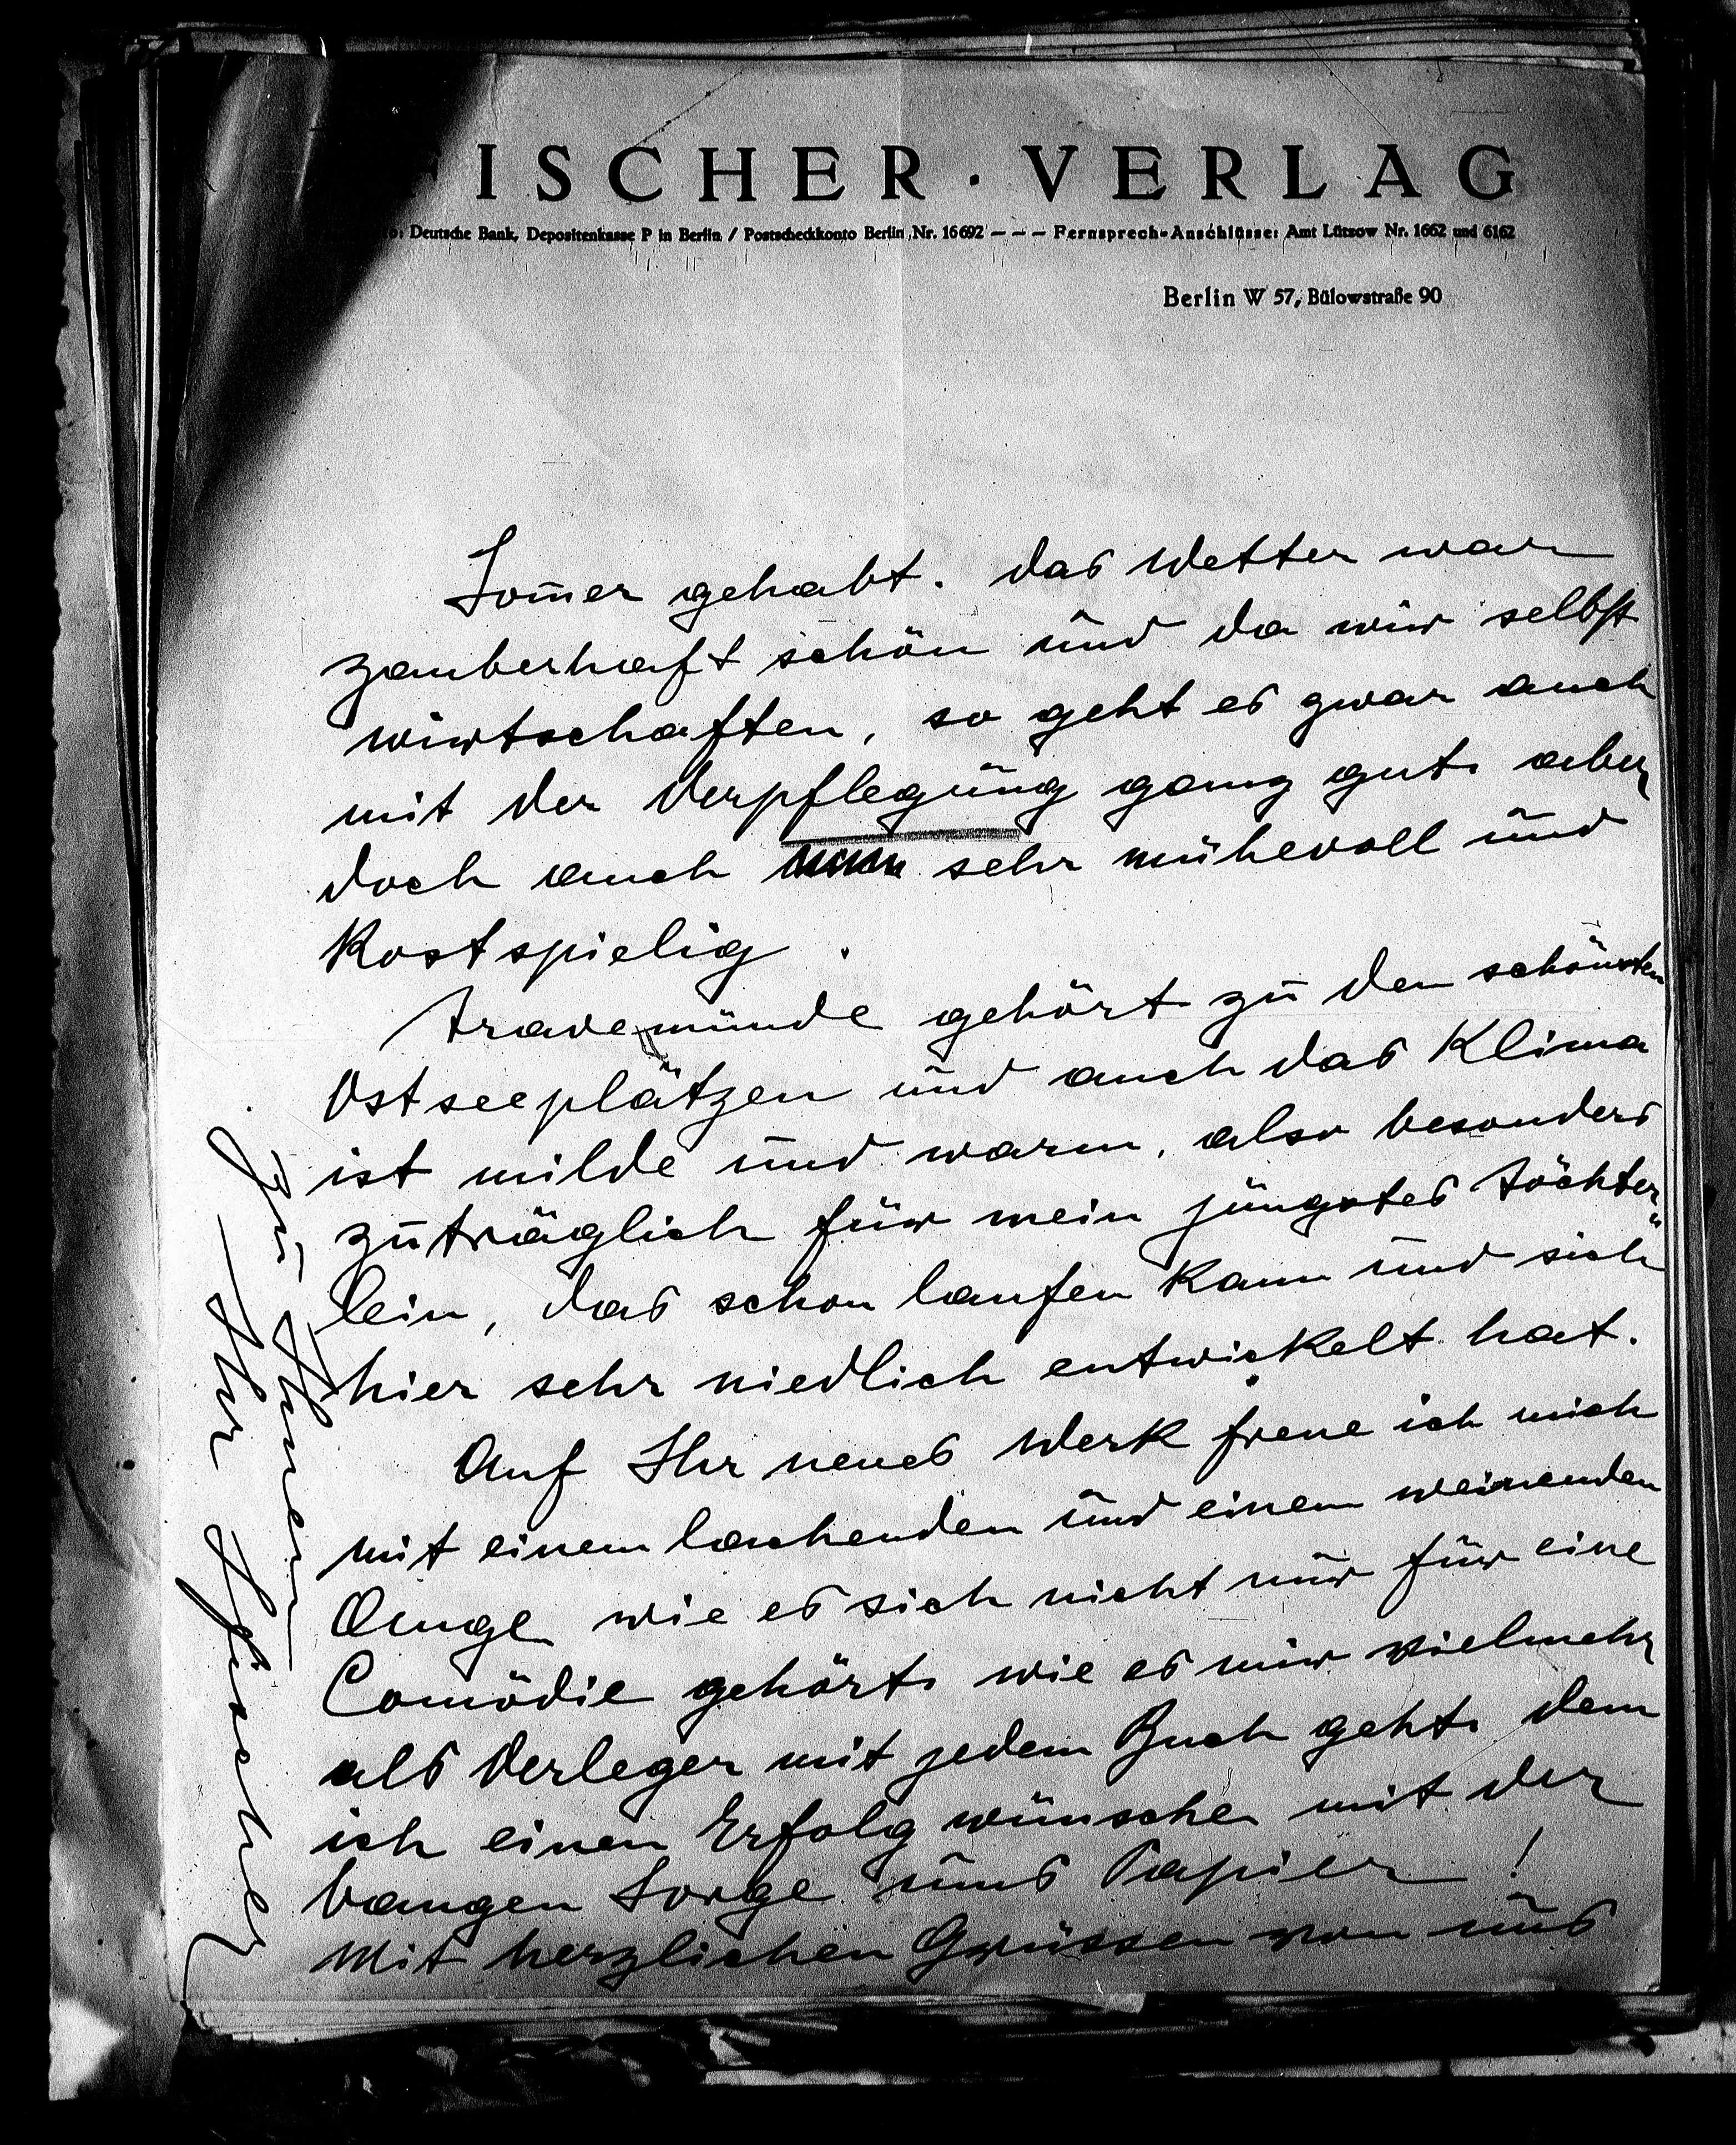 FISCHER · VERLAG
: Deutsche Bank, Depositenkasse P in Berlin / Postscheckkonto Berlin Nr. 16692 – – – Fernsprech-Anschlüsse: Amt Lützow Nr. 1662 und 6162
Berlin W 57, Bülowstraße 90
Som̅er gehabt. Das Wetter war
zauberhaft schön und da wir selbst
wirtschaften, so geht es zwar auch
mit der Verpflegung ganz gut, aber
doch auch sehr mühevoll und
Kostspielig.
Travemünde gehört zu den schönsten
Ostseeplätzen und auch das Klima
ist milde und warm, also besonders
zuträglich für mein jüngstes Töchter„
lein, das schon laufen kann und sich
hier sehr niedlich entwickelt hat.
Auf Ihr neues Werk freue ich mich
mit einem lachenden und einem weinenden
Auge wie es sich nicht nur für eine
Comödie gehört, wie es mir vielmehr
als Verleger mit jedem Buch geht, dem
ich einen Erfolg wünsche mit der
bangen Sorge ums Papier!
Mit herzlichen Grüssen von uns
zu Ihnen
Ihr SFischer